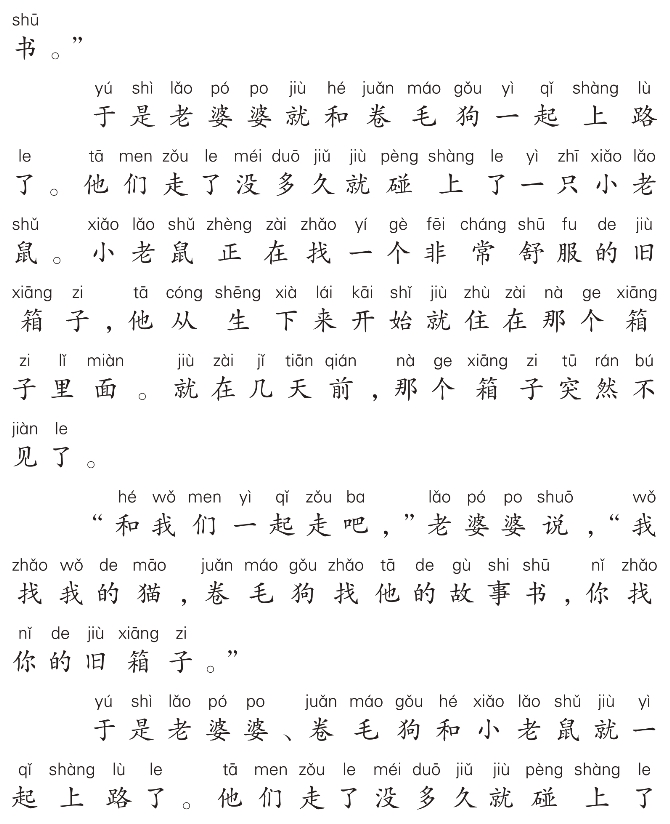 shū
书。”
yú shì lǎo pó po jiù hé juǎn máo gǒu yì qǐ shàng lù
于是老婆婆就和卷毛狗一起上路
le tā men zǒu le méi duō jiǔ jiù pèng shàng le yì zhī xiǎo lǎo
了。他们走了没多久就碰上了一只小老
shǔ xiǎo lǎo shǔ zhèng zài zhǎo yí gè fēi cháng shū fu de jiù
鼠。小老鼠正在找一个非常舒服的旧
xiāng zi tā cóng shēng xià lái kāi shǐ jiù zhù zài nà ge xiāng
箱子,他从生下来开始就住在那个箱
zi lǐ miàn jiù zài jǐ tiān qián nà ge xiāng zi tū rán bú
子里面。就在几天前,那个箱子突然不
jiàn le
见了。
hé wǒ men yì qǐ zǒu ba lǎo pó po shuō wǒ
“和我们一起走吧,”老婆婆说,“我
zhǎo wǒ de māo juǎn máo gǒu zhǎo tā de gù shi shū nǐ zhǎo
找我的猫,卷毛狗找他的故事书,你找
nǐ de jiù xiāng zi
你的旧箱子。”
yú shì lǎo pó po juǎn máo gǒu hé xiǎo lǎo shǔ jiù yì
于是老婆婆、卷毛狗和小老鼠就一
qǐ shàng lù le tā men zǒu le méi duō jiǔ jiù pèng shàng le
起上路了。他们走了没多久就碰上了